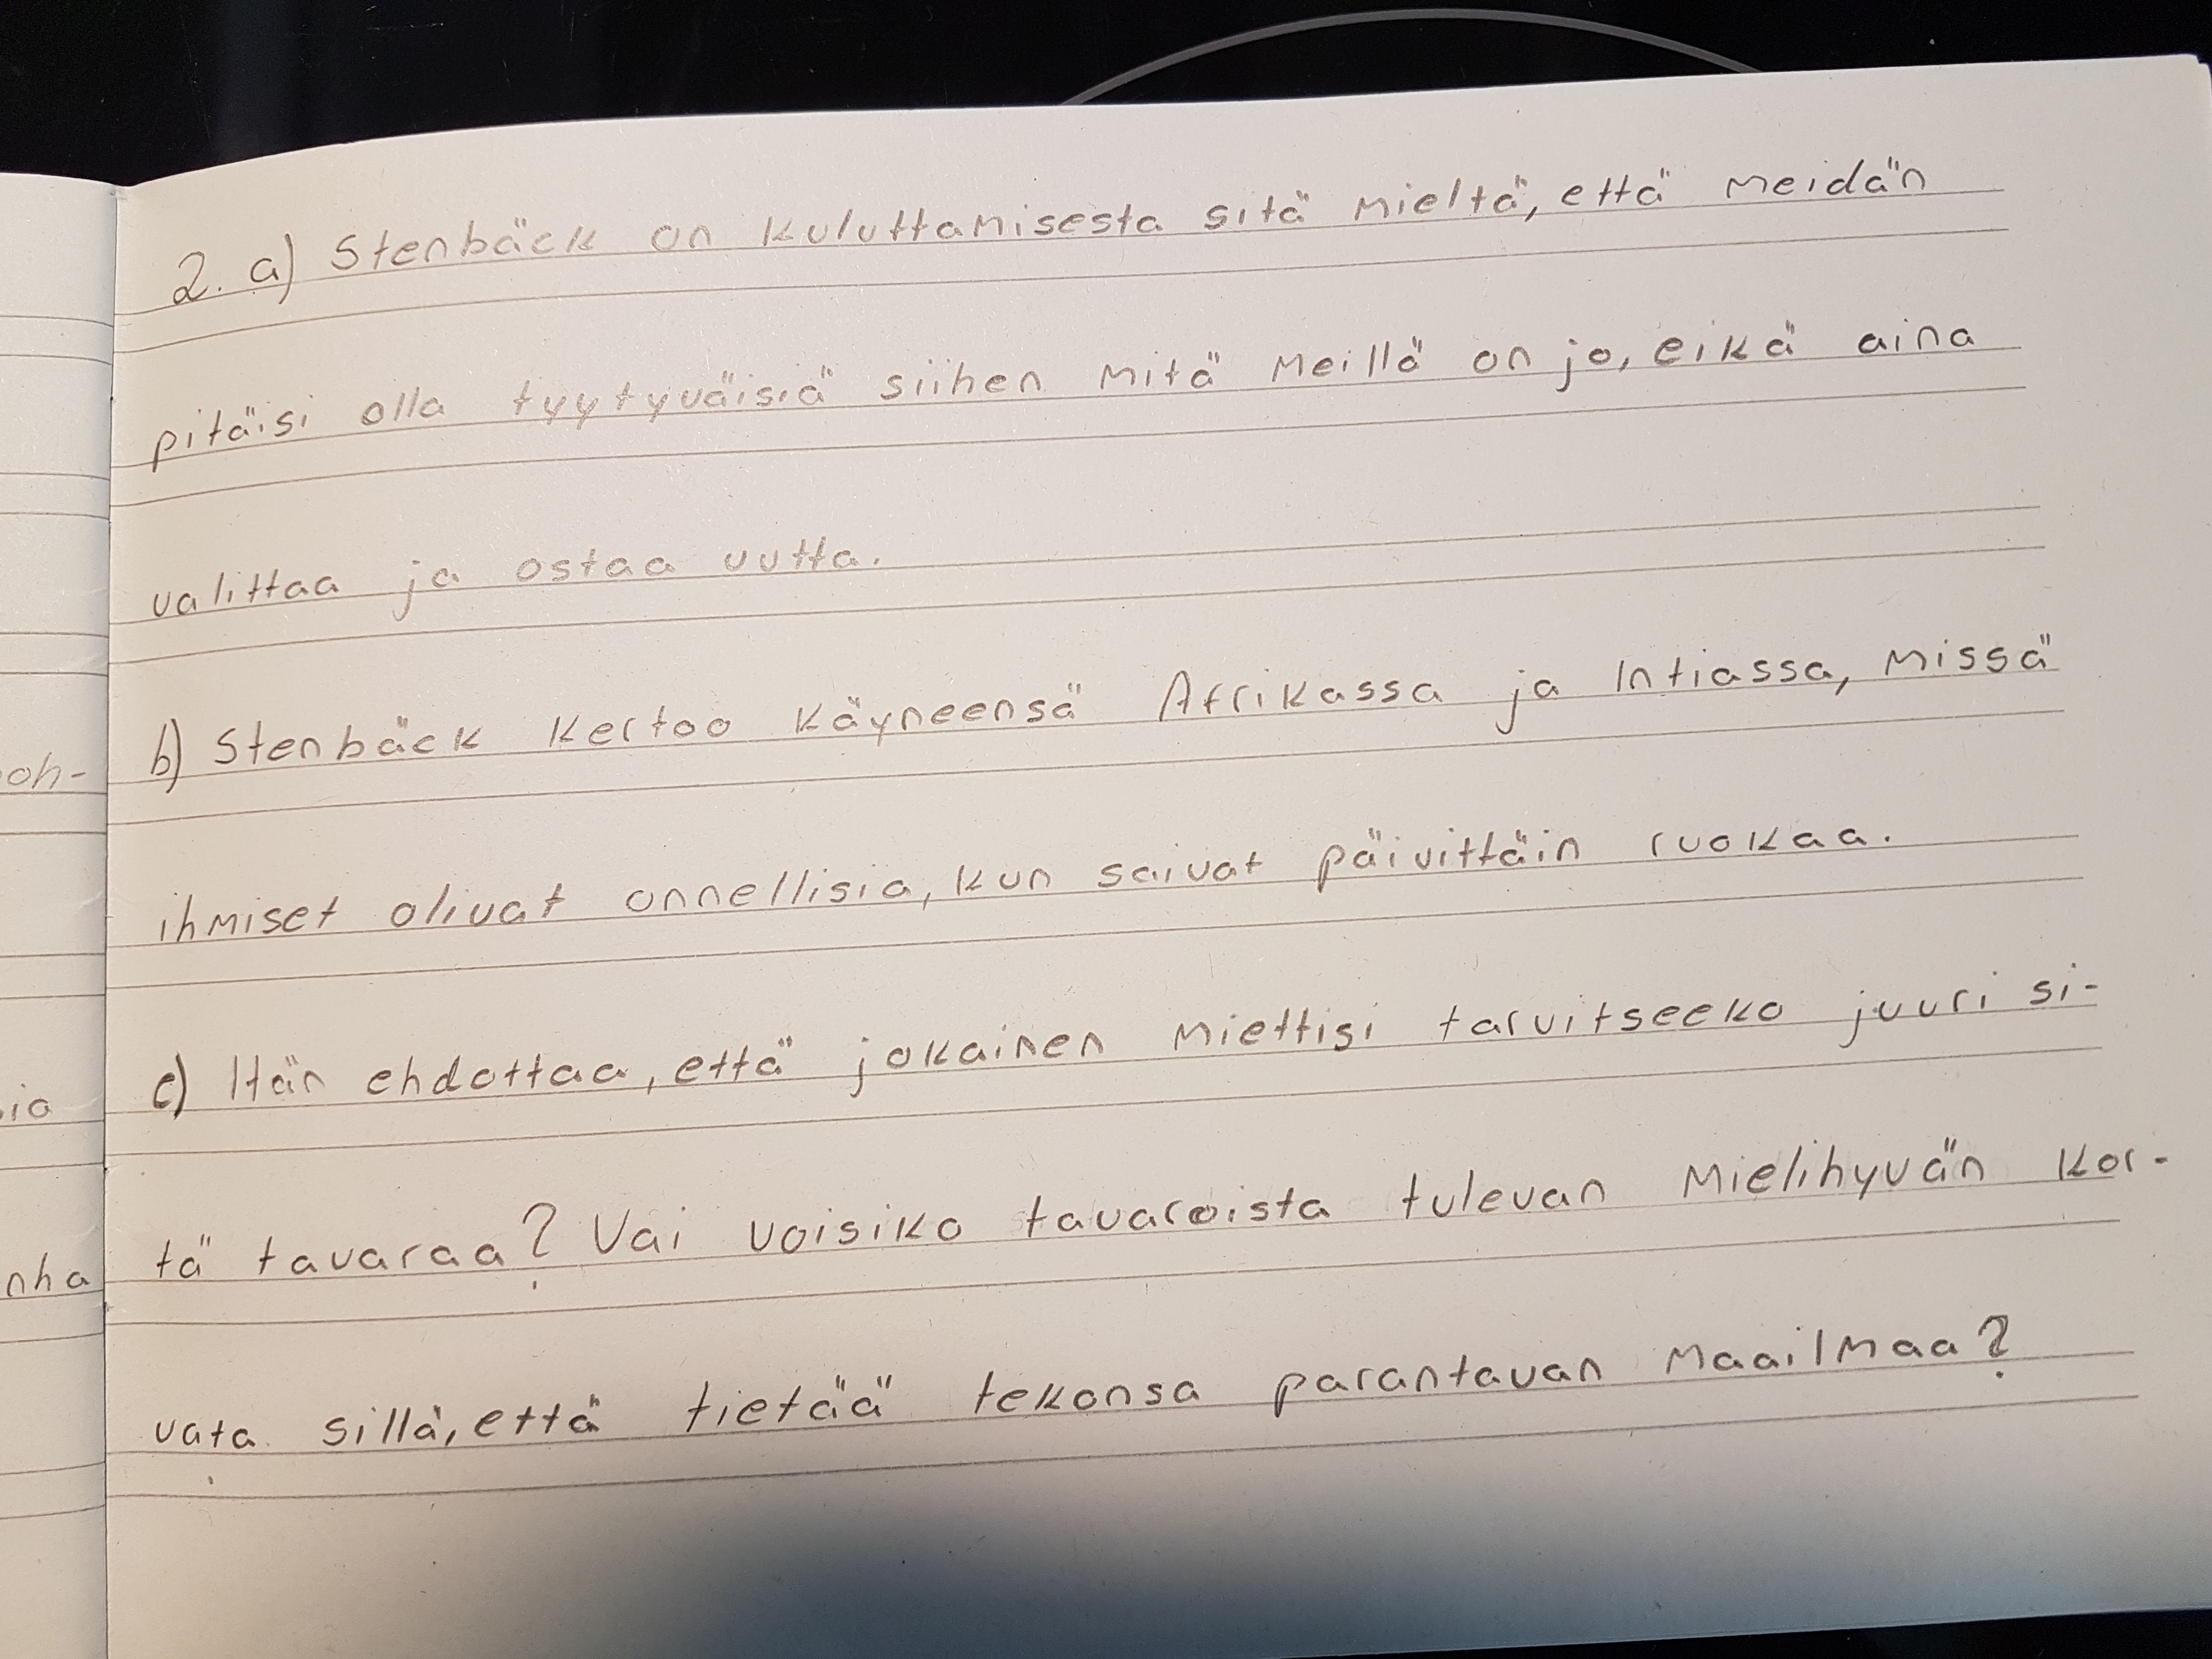 2. a) Stenbäck on kuluttamisesta sitä mieltä, että meidän
pitäisi olla tyytyväisiä siihen mitä meillä on jo, eikä aina
valittaa ja ostaa uutta.
b) Stenbäck kertoo käyneensä Afrikassa ja Intiassa, missä
ihmiset olivat onnellisia, kun saivat päivittäin ruokaa.
c) Hän ehdottaa, että jokainen miettisi tarvitseeko juuri si-
tä tavaraa? Vai voisiko tavaroista tulevan mielihyvän kor-
vata sillä, että tietää tekonsa parantavan maailmaa?
oh-
io
nha